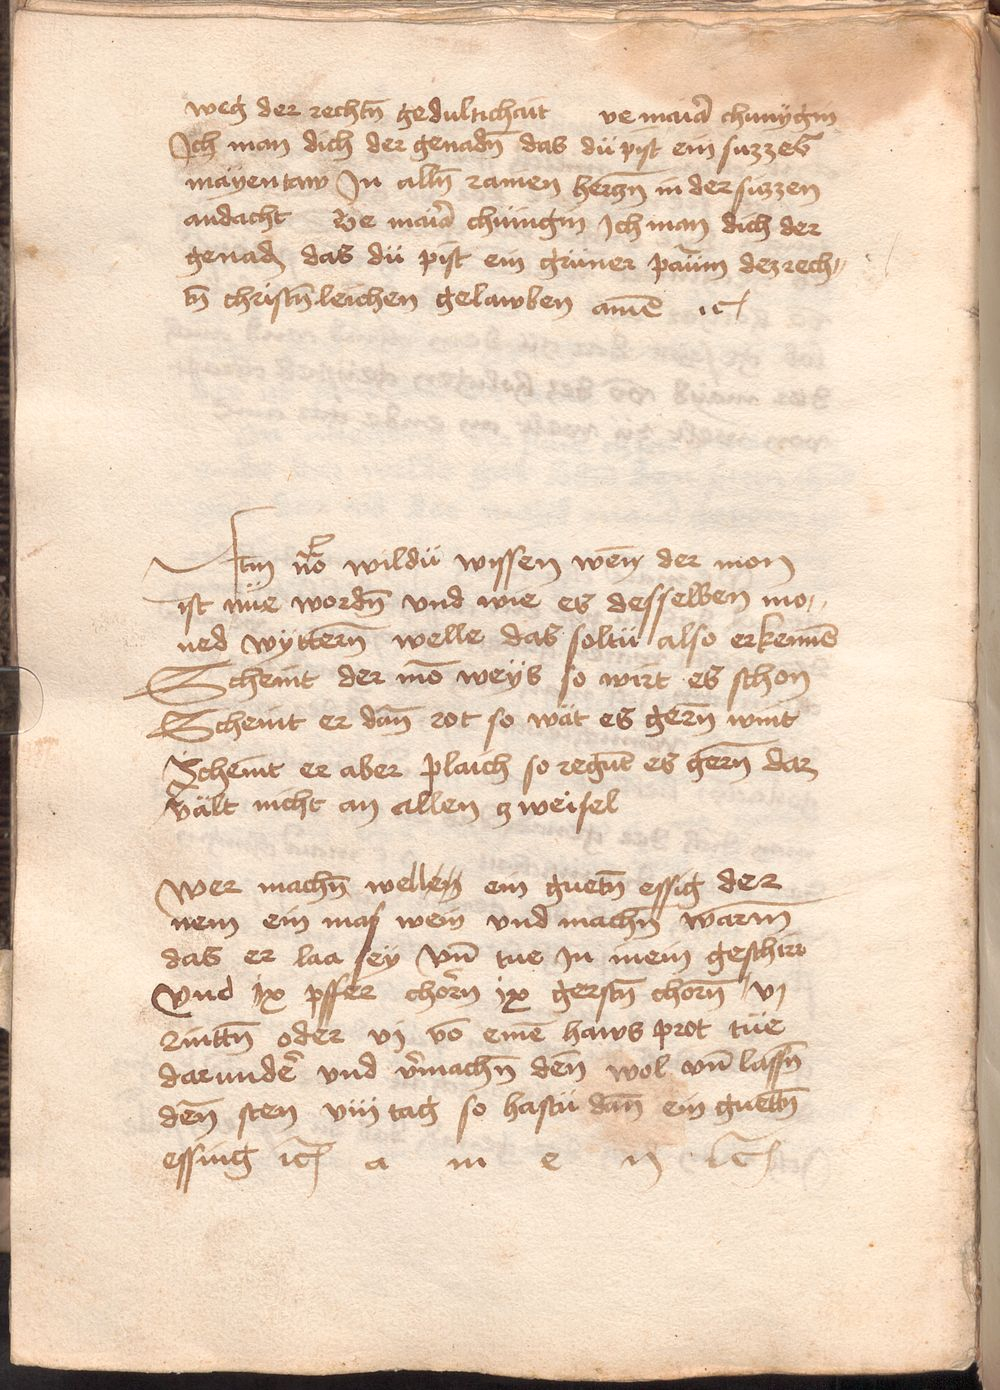 weg der rechtn̄ gedultichait ve maria chunygin
Ich man dich der genadn̄ das dü pist ein suzzes
mäyentaw In alln̄ ramen herczn̄ in der süzzen
andacht Ve maria chünigin Ich man dich der
genadn̄ das dü pist ein grüner paum dez rech-
tn̄ christn̄leichen gelawben amē ꝛc
Itm̄ wildü wissen wen̄ der mon
ist nüe wordn̄ vnd wie es desselben mo-
ned wyttern̄ welle das soltü also erkennē
Scheint der mō weys so wirt es schon
Scheint er dan̄ rot so wät es gern̄ wint
Scheint er aber plaich so regnt̄ es gern̄ daz
vält nicht an allen zweifel
Wer machn̄ wellen ein guetn̄ essig der
nem ein mas wein vnd machn̄ warm
das er laa sey vn̄ tue In inein geschirr
Vnd ix pffer chorn̄ ix gerstn̄ chorn̄ vj
rinttn̄ oder vj vō einē haws prot tüe
darunder vnd v̄machn̄ den̄ wol vn̄ lassn̄
den̄ sten viii tag so hastü dan̄ ein guettn̄
essing ꝛc a m e n ꝛc